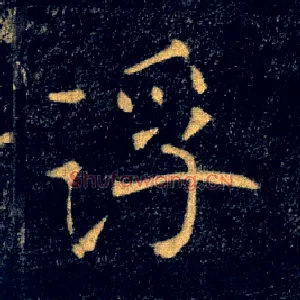 浮
Shufawang.CN